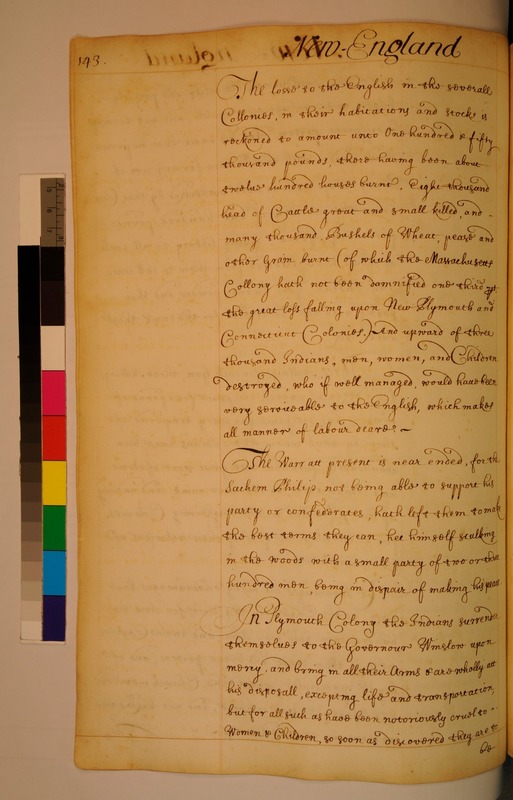 143.
New-England
The losse to the English in the severall
Collonies, in their habitations and stocks is
reckoned to amount unto One hundred & fifty
thousand pounds, there having been about
twelve hundred houses burnt, Eight thousand
head of Cattle great and small killed, and
many thousand Bushels of Wheat, pease and
other Grain burnt (of which the Massachusetts
Collony hath not been damnified one third pt.
the great loss falling upon New Plymouth and
Connecticut Colonies.) And upward of three
thousand Indians, men, women, and Children
destroyed, who if well managed, would have been
very serviceable to the English, which makes
all manner of labour deare. ~
The Warr att present is near ended, for the
Sachem Philip not being able to support his
party or confederates, hath left them to make
the best terms they can, hee himself sculking
in the woods with a small party of two or three
hundred men, being in dispair of making his peace
In Plymouth Colony the Indians surrender
themselves to the Governour Winslow upon
mercy, and bring in all their Arms & are wholly att
his disposall, excepting life and transportation,
but for all such as have been notoriously cruel to -
Women & Children, so soon as discovered they are to
be